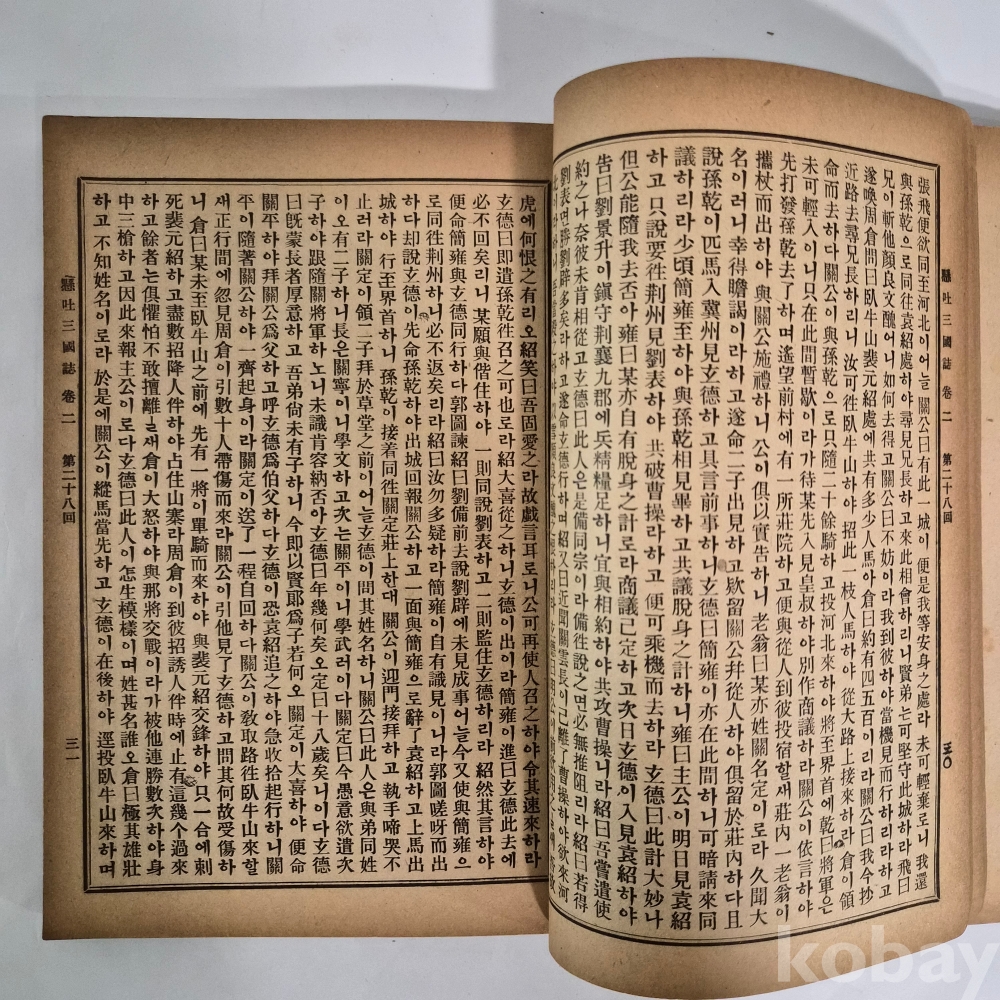 懸吐三國誌 卷二 第二十八回 三〇
張飛便欲同至河北이어늘 關公曰有此一城이 便是我等安身之處라 未可輕棄로니 我還
與孫乾으로同往袁紹處하야尋見兄長하고來此相會하리니賢弟는可堅守此城하라飛曰
兄이斬他顔良文醜어니如何去得고關公曰不妨이라我到彼하야當機見而行하리라하고
遂喚周倉問曰臥牛山裴元紹處에共有多少人馬아倉曰約有四五百이리라關公曰我今抄
近路去尋兄長하리니汝可徃臥牛山하야 招此一枝人馬하야 從大路上接來하라 倉이領
命而去하다關公이與孫乾으로只隨二十餘騎하고投河北來하야將至界首에乾曰將軍은
未可輕入이니只在此間暫歇이라가待某先入見皇叔하야別作商議하라關公이依言하야
先打發孫乾去了하며遙望前村에有一所莊院하고便與從人到彼投宿할새莊內一老翁이
攜杖而出하야 與關公施禮하니公이俱以實告하니 老翁曰某亦姓關名定이로라 久聞大
名이러니幸得瞻謁이라하고遂命二子出見하고欵留關公幷從人하야俱留於莊內하다且
說孫乾이匹馬入冀州見玄德하고具言前事하니玄德曰簡雍이亦在此間하니可暗請來同
議하리라少頃簡雍至하야與孫乾相見畢하고共議脫身之計하니雍曰主公이明日見袁紹
하고 只說要徃荆州見劉表하야 共破曹操라하고 便可乘機而去하라 玄德曰此計大妙나
但公能隨我去否아雍曰某亦自有脫身之計로라商議已定하고次日玄德이入見袁紹하야
告曰劉景升이鎭守荆襄九郡에兵精糧足하니宜與相約하야共攻曹操니라紹曰吾嘗遣使
約之나奈彼未肯相從고玄德曰此人은是備同宗이라備徃說之면必無推阻리라紹曰若得
劉表면勝劉辟多矣라하고遂命玄德行하며紹又曰近聞關雲長이已離了曹操하야欲來河
虎에何恨之有리오紹笑曰吾固愛之라故戱言耳로니公可再使人召之하야令其速來하라
玄德曰即遣孫乾徃召之可也로라紹大喜從之하니玄德이出이라簡雍이進曰玄德此去에
必不回矣리니某願與偕住하야 一則同說劉表하고 二則監住玄德하리라 紹然其言하야
便命簡雍與玄德同行하다郭圖諫紹曰劉備前去說劉辟에未見成事어늘今又使與簡雍으
로同徃荆州하니必不返矣리라紹曰汝勿多疑하라簡雍이自有識見이니라郭圖嗟呀而出
하다却說玄德이先命孫乾하야出城回報關公하고一面與簡雍으로辭了袁紹하고上馬出
城하야 行至界首하니 孫乾이接着同徃關定莊上한대 關公이迎門接拜하고 執手啼哭不
止러라關定이領二子拜於草堂之前이어늘玄德이問其姓名하니關公曰此人은與弟同姓
이오有二子하니長은關寧이니學文하고次는關平이니學武러이다關定曰今愚意欲遣次
子하야跟隨關將軍하노니未識肯容納否아玄德曰年幾何矣오定曰十八歲矣니이다玄德
曰旣蒙長者厚意하고 吾弟尙未有子하니 今即以賢郞爲子若何오 關定이大喜하야 便命
關平하야拜關公爲父하고呼玄德爲伯父하다玄德이恐袁紹追之하야急收拾起行하니關
平이隨著關公하야一齊起身이라關定이送了一程自回하다關公이敎取路徃臥牛山來할
새正行間에忽見周倉이引數十人帶傷而來라關公이引他見了玄德하고問其何故受傷하
니 倉曰某未至臥牛山之前에 先有一將이單騎而來하야 與裴元紹交鋒하야只一合에刺
死裴元紹하고盡數招降人伴하야占住山寨라周倉이到彼招誘人伴時에止有這幾个過來
하고餘者는俱懼怕不敢擅離늘새倉이大怒하야與那將交戰이라가被他連勝數次하야身
中三槍하고因此來報主公이로다玄德曰此人이怎生模樣이며姓甚名誰오倉曰極其雄壯
하고 不知姓名이로라 於是에關公이縱馬當先하고 玄德이在後하야 逕投臥牛山來하며
懸吐三國誌 卷二 第二十八回 三一
kobay